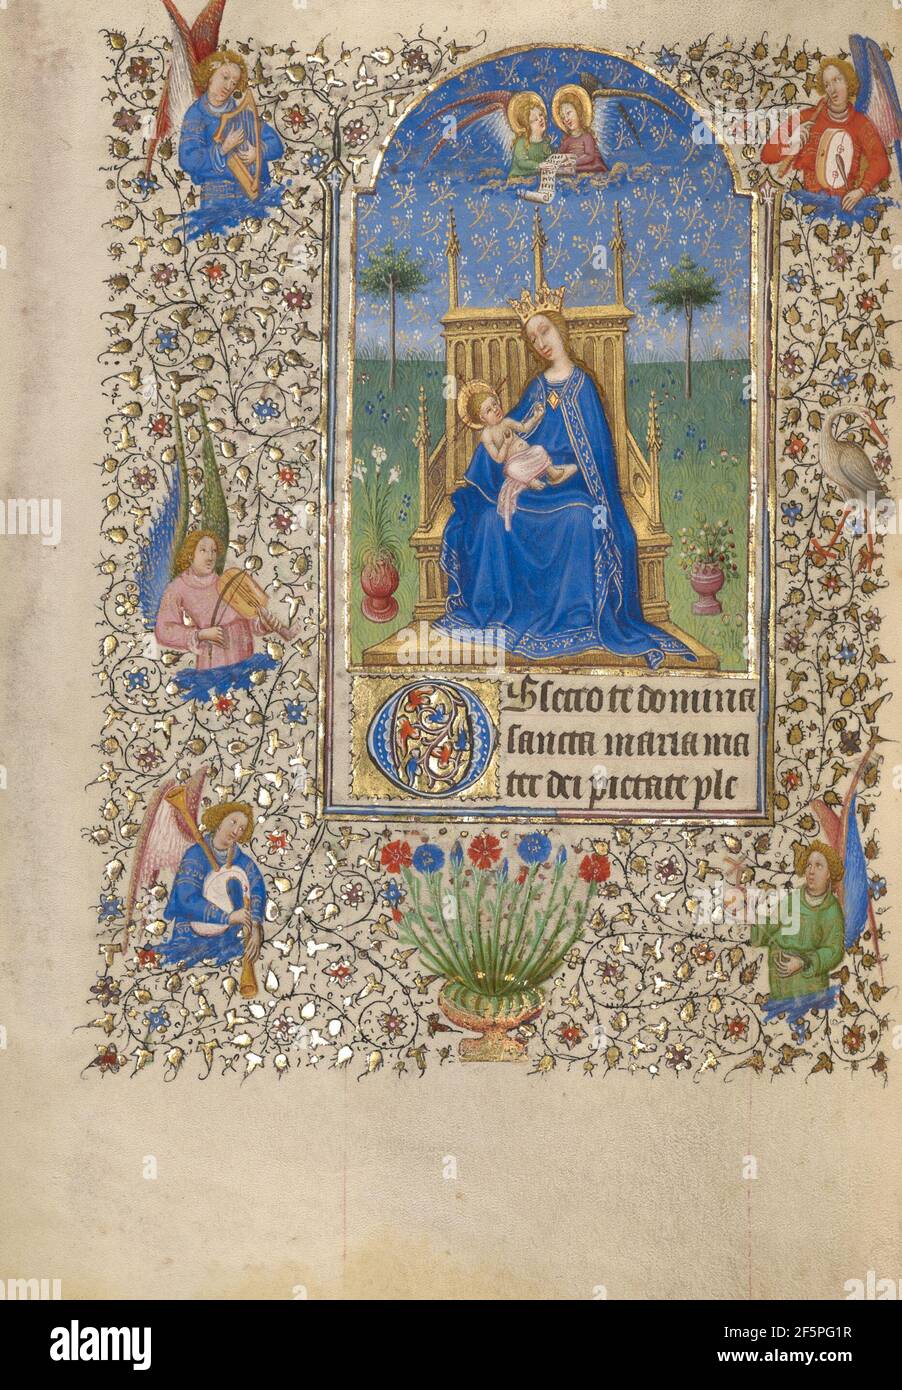 OBsecro te domina
sancta maria ma
ter dei pietate ple
alamy
Image ID: 2F5PG1R
www.alamy.com